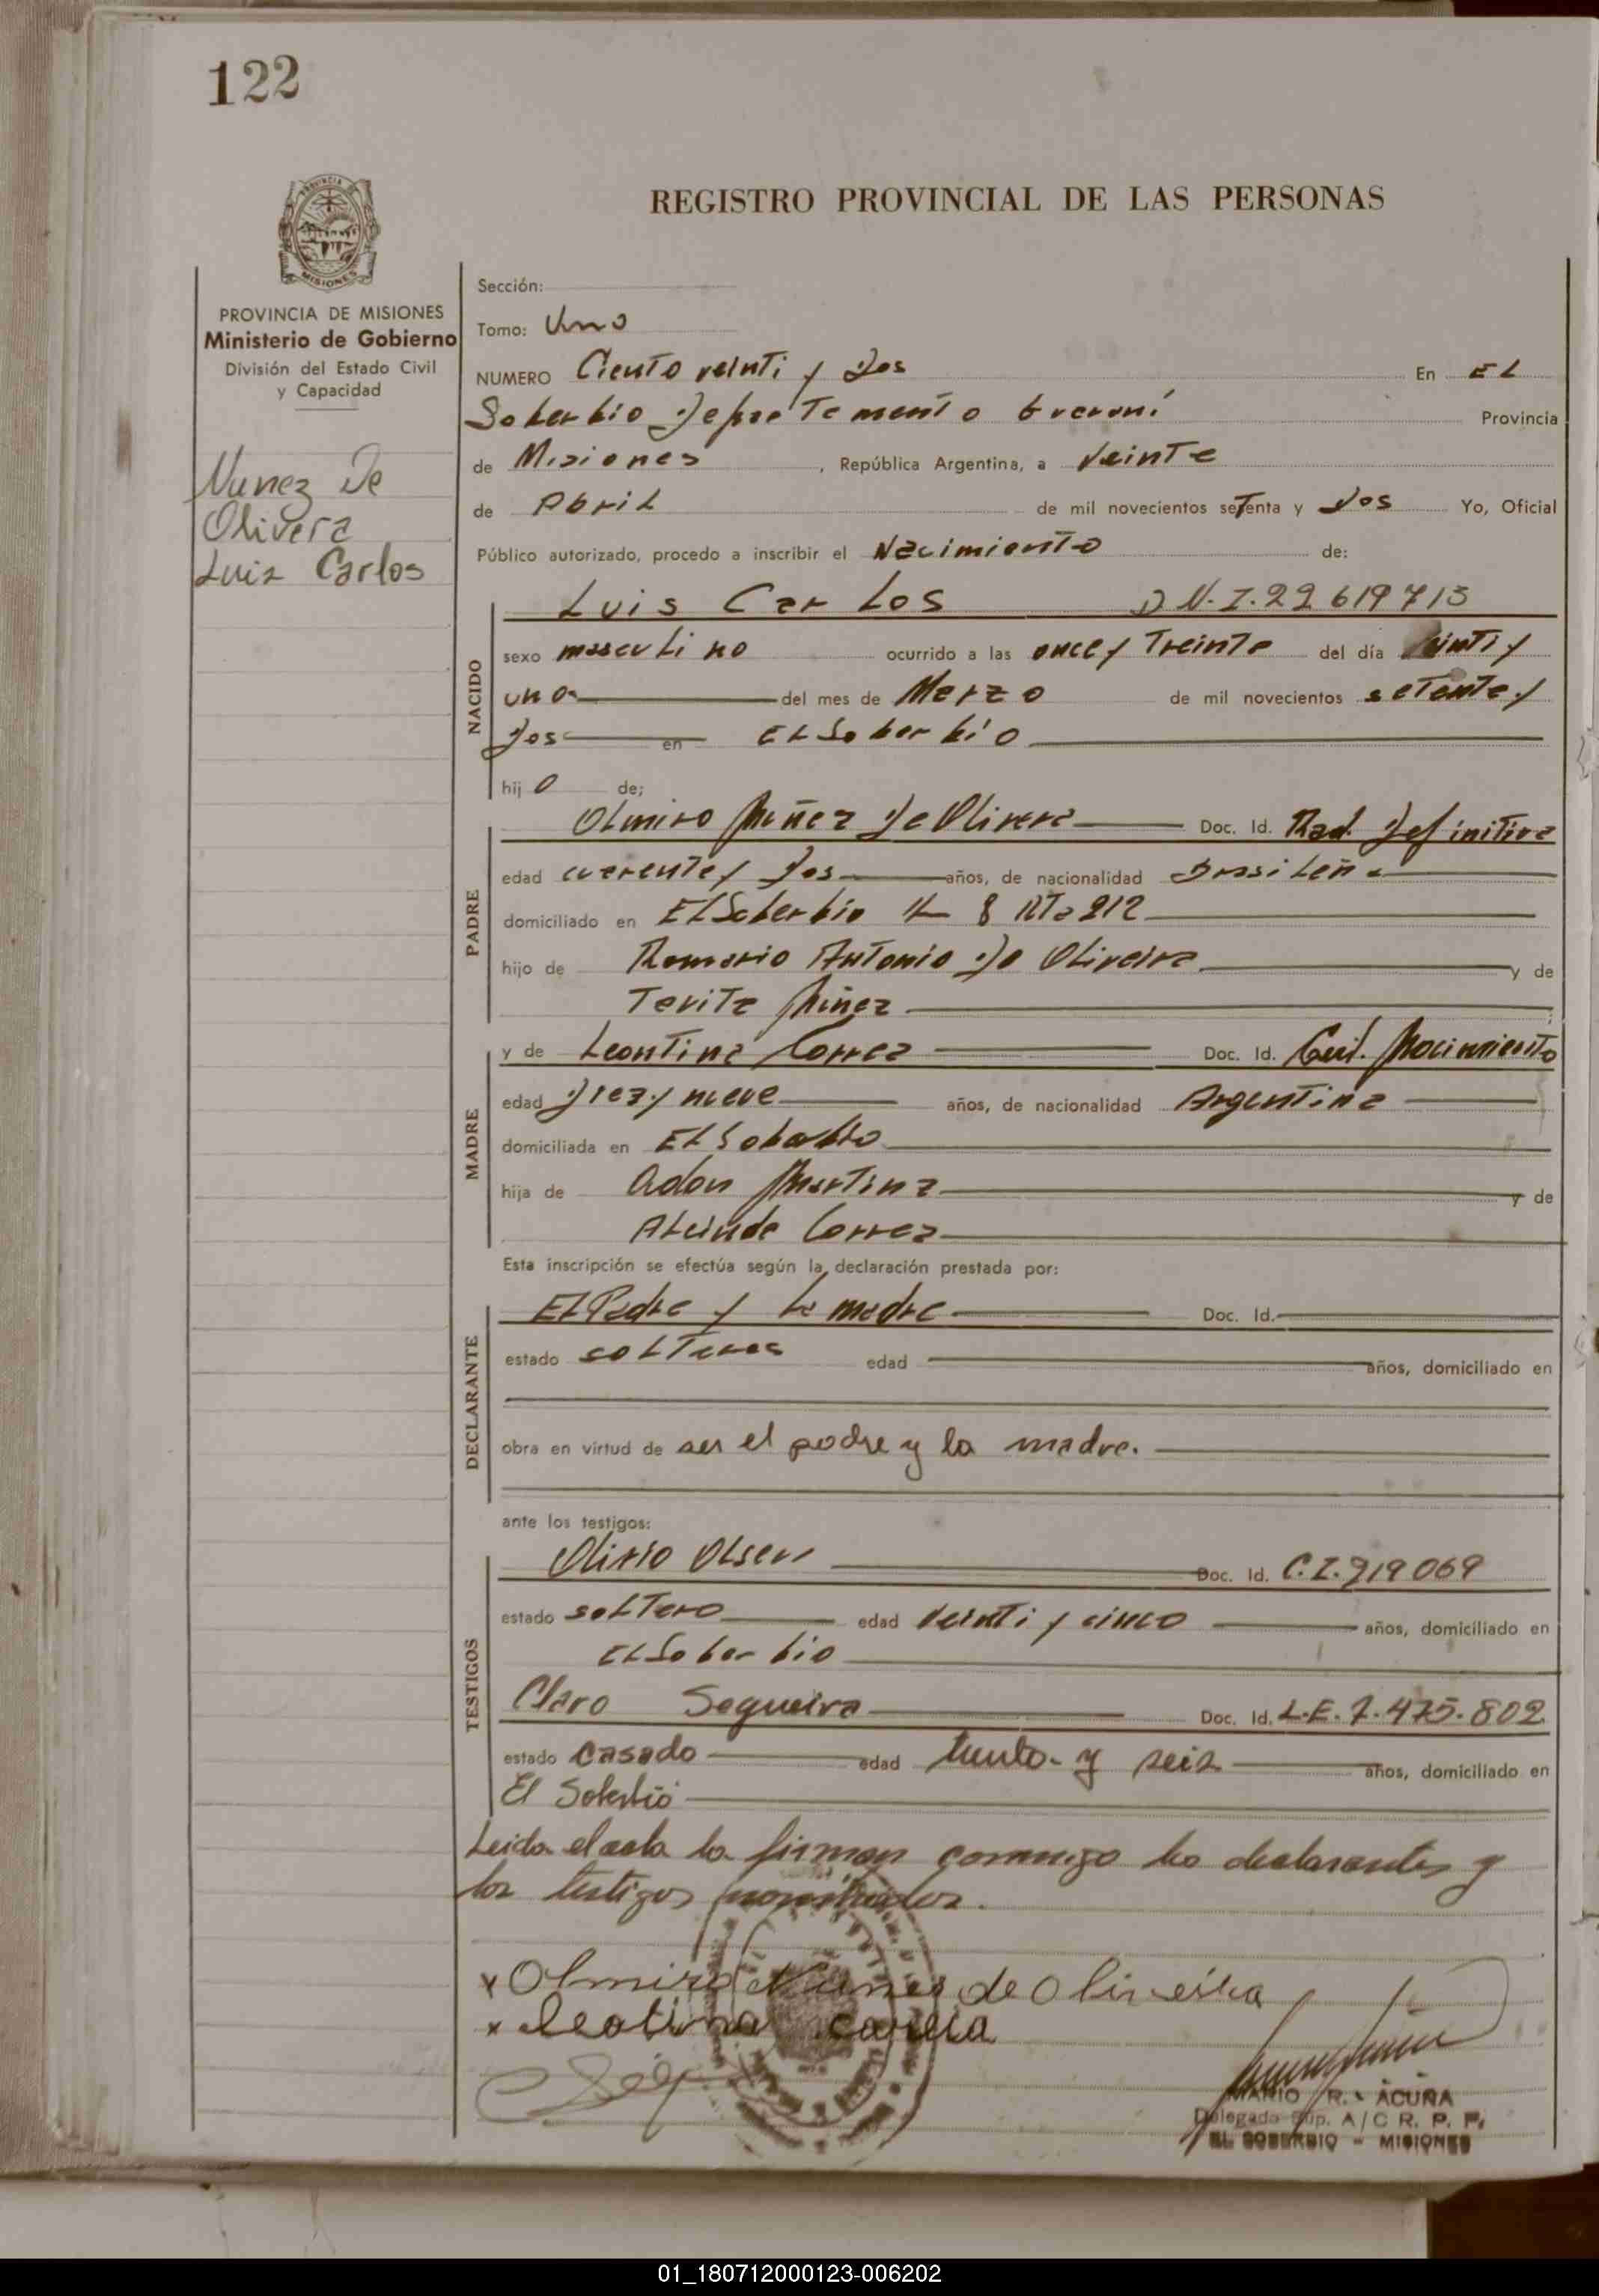 122
REGISTRO PROVINCIAL DE LAS PERSONAS
PROVINCIA DE MISIONES
Ministerio de Gobierno
División del Estado Civil
y Capacidad
Nunez De
Olivera
Luis Carlos
Sección:
Tomo: Uno
NUMERO Ciento veinti y dos En EL
Soberbio departamento Guaraní Provincia
de Misiones, República Argentina, a Veinte
de Abril de mil novecientos setenta y dos Yo, Oficial
Público autorizado, procedo a inscribir el Nacimiento de:
NACIDO
Luis Carlos D.N.I. 22 619 713
sexo masculino ocurrido a las once y Treinta del día veinti y
uno del mes de Marzo de mil novecientos setenta y
dos en EL Soberbio
hij o de;
PADRE
Olmiro Núñez de Olivera Doc. Id. Rad. Definitiva
edad cuarenta y dos años, de nacionalidad Brasileña
domiciliado en EL Soberbio 8 RTa 212
hijo de Romario Antonio de Oliveira y de
Núñez
MADRE
y de Leontina Correa Doc. Id. Cert. Nacimiento
edad diez y nueve años, de nacionalidad Argentina
domiciliada en EL Soberbio
hija de Adon Martins y de
Alcinda Correa
Esta inscripción se efectúa según la declaración prestada por:
DECLARANTE
El Padre y la madre Doc. Id.
estado solteros edad años, domiciliado en
obra en virtud de ser el padre y la madre.
ante los testigos:
TESTIGOS
Olirio Olsen Doc. Id. C.I. 219 069
estado soltero edad veinti y cinco años, domiciliado en
EL Soberbio
Claro Sequeira Doc. Id. L.E. 7.475.802
estado casado edad treinta y seis años, domiciliado en
El Soberbio
Leida el acta la firman conmigo los declarantes y
los testigos nombrados.
x Olmiro Nunes de Oliveira
x Leotina correia
MARIO R. ACUÑA
Delegado Sup. A/C R. P. P.
EL SOBERBIO - MISIONES
01_180712000123-006202